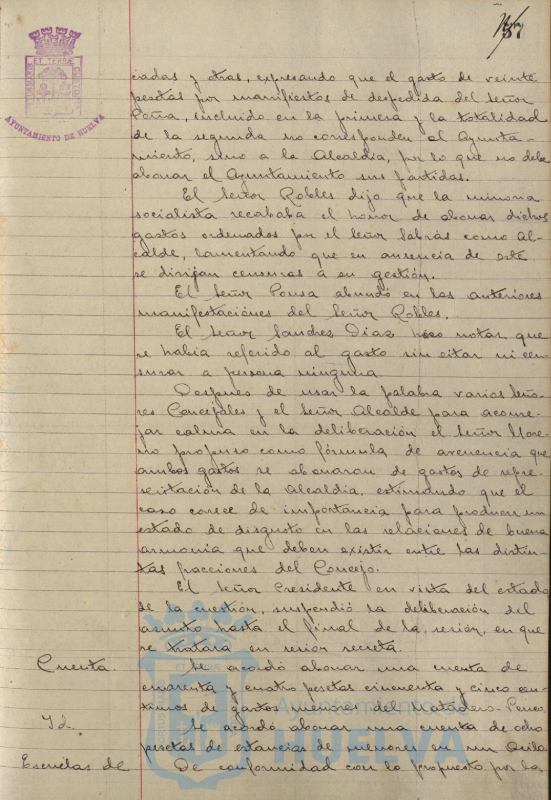 37
PORTUS MARIS ET TERRAE CUSTODIA
AYUNTAMIENTO DE HUELVA
ciadas y otras, expresando que el gasto de veinte
pesetas por manifiestos de despedida del Señor
Peña, incluido en la primera y la totalidad
de la segunda no corresponden al Ayunta-
miento, sino a la Alcaldia, por lo que no debe
abonar el Ayuntamiento sus partidas.
El Señor Robles dijo que la minoria
socialista recababa el honor de abonar dichos
gastos ordenados por el Señor Sabrás como Al-
calde, lamentando que en ausencia de este
se dirijan censuras á su gestión.
El Señor Ponsa abundó en las anteriores
manifestaciones del Señor Robles.
El Señor Sanchez Diaz hizo notar que
se habia referido al gasto sin citar ni cen-
surar a persona ninguna.
Despues de usar la palabra varios Seño-
res Concejales y el Señor Alcalde para aconse-
jar calma en la deliberación el Señor More-
no propuso como fórmula de avenencia que
ambos gastos se abonaran de gastos de repre-
sentación de la Alcaldia, estimando que el
caso carece de importancia para producir un
estado de disgusto en las relaciones de buena
armonia que deben existir entre las distin-
tas fracciones del Concejo.
El Señor Presidente en vista del estado
de la cuestión, suspendió la deliberación del
asunto hasta el final de la sesion, en que
se tratará en sesion secreta.
Cuenta. Se acordó abonar una cuenta de
cuarenta y cuatro pesetas cincuenta y cinco cen-
timos de gastos menores del Matadero.
Id. Se acordó abonar una cuenta de ocho
pesetas de estancias de menores en un Asilo
Escuelas de De conformidad con lo propuesto por la
Ayuntamiento de
HUELVA